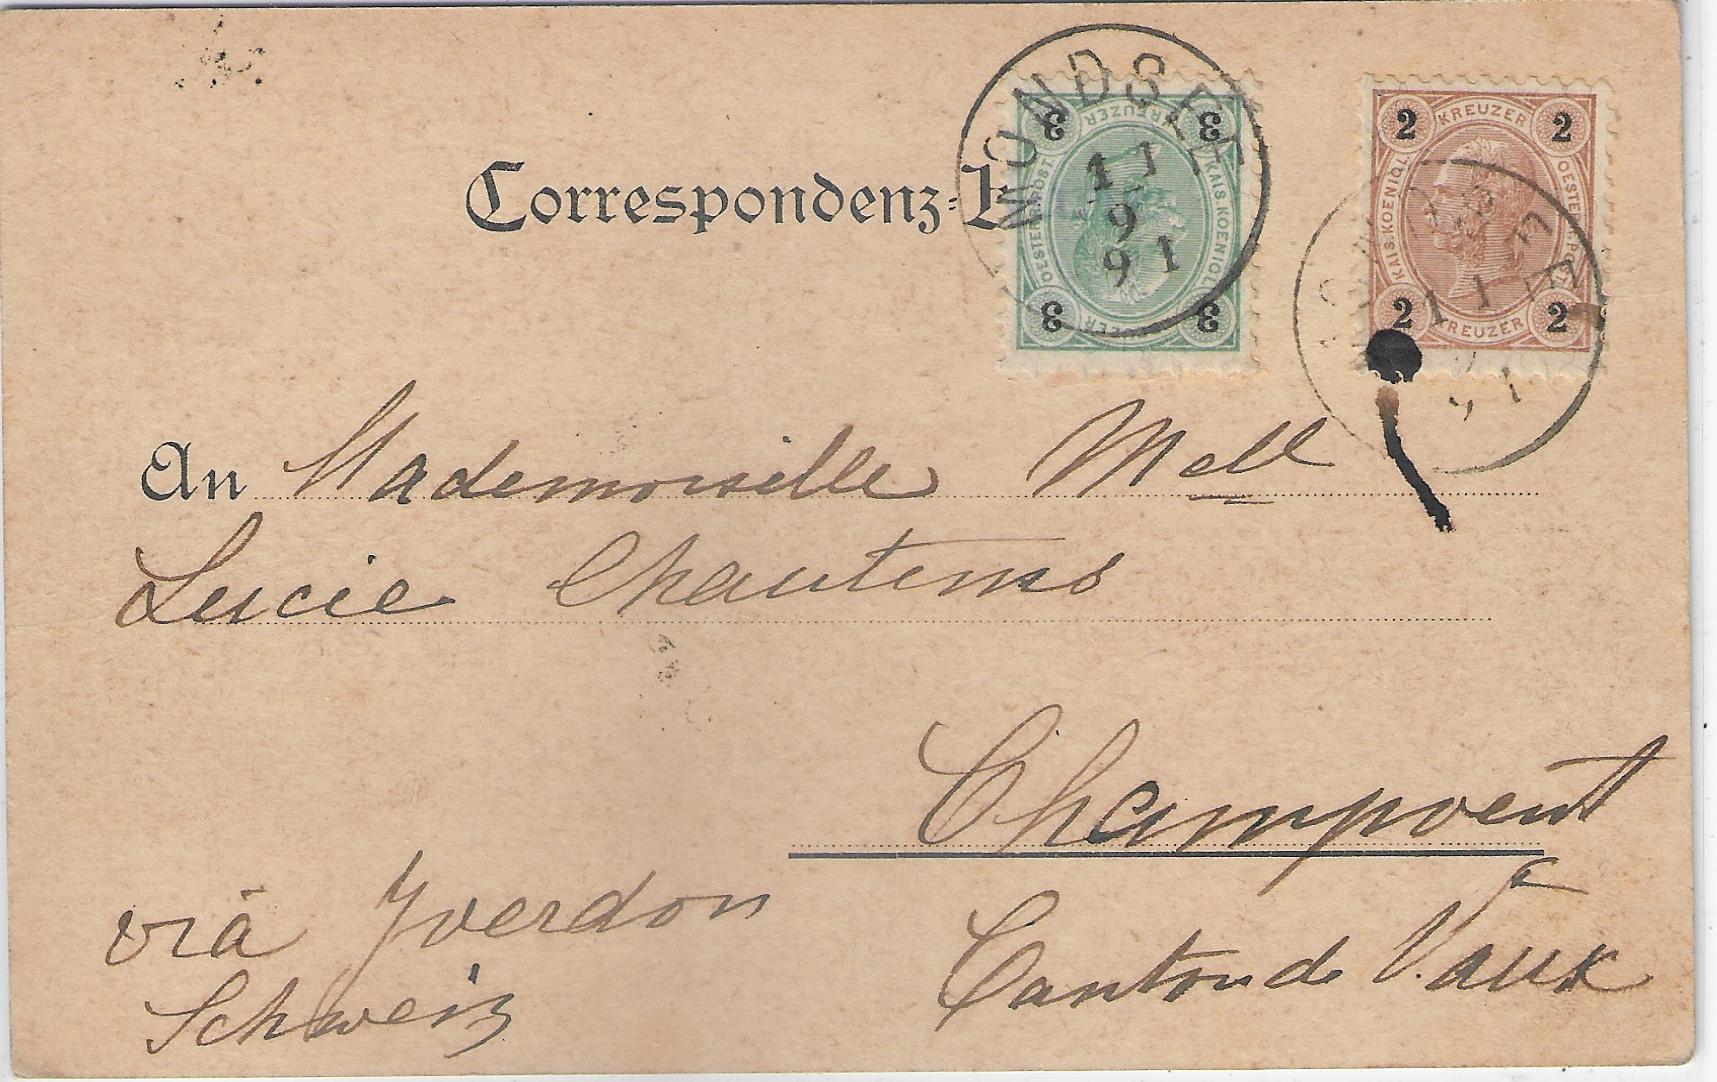 Correspondenz-K
MONDSEE
11
9
91
3 KREUZER 3
KAIS. KOENIGL. OESTERR. POST
3 3
2 KREUZER 2
KAIS. KOENIGL. OESTERR. POST
2 KREUZER 2
11
91
An Mademoiselle Mell
Lucie Chautems
Champvent
viâ Yverdon
Canton de Vaux
Schweiz